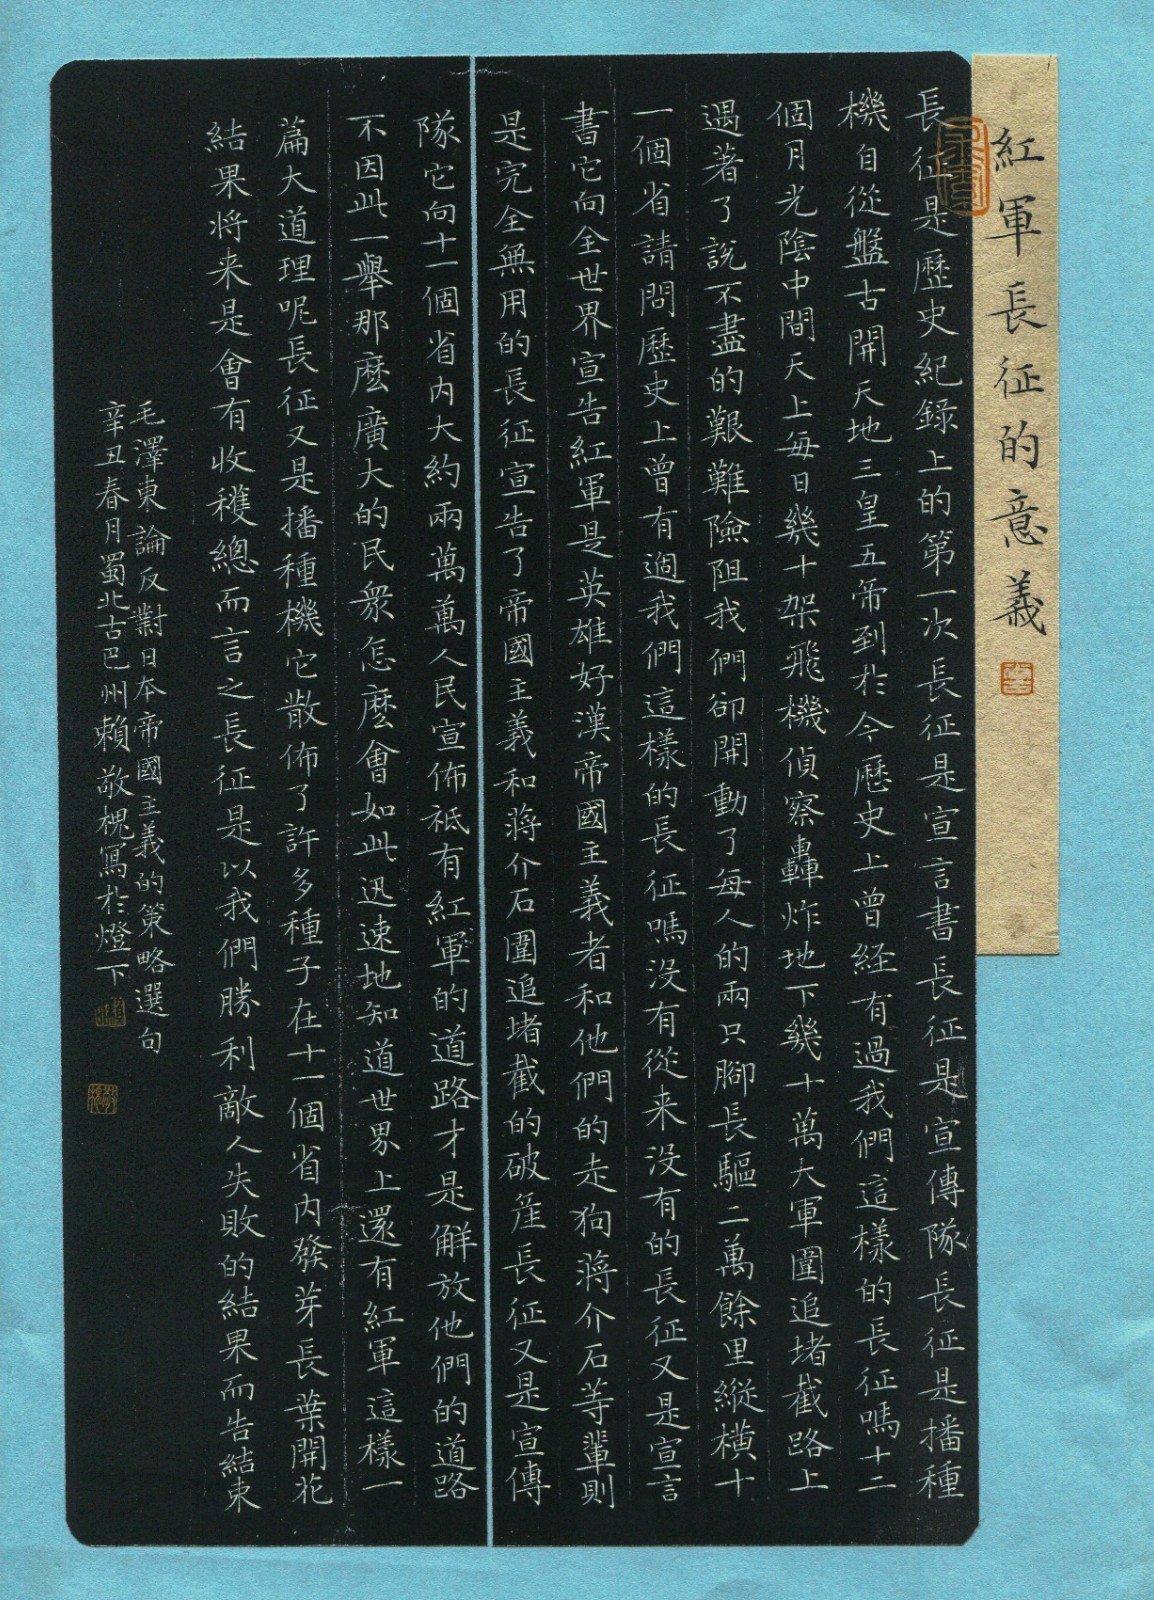 紅軍長征的意義
長征是歷史紀錄上的第一次長征是宣言書長征是宣傳隊長征是播種
機自從盤古開天地三皇五帝到於今歷史上曾経有過我們這樣的長征嗎十二
個月光陰中間天上每日幾十架飛機偵察轟炸地下幾十萬大軍圍追堵截路上
遇著了説不盡的艱難險阻我們卻開動了每人的兩只腳長驅二萬餘里縱橫十
一個省請問歷史上曾有過我們這樣的長征嗎沒有從来沒有的長征又是宣言
書它向全世界宣告紅軍是英雄好漢帝國主義者和他們的走狗蔣介石等輩則
是完全無用的長征宣告了帝國主義和蔣介石圍追堵截的破産長征又是宣傳
隊它向十一個省内大約兩萬萬人民宣佈祗有紅軍的道路才是解放他們的道路
不因此一舉那麽廣大的民衆怎麽會如此迅速地知道世界上還有紅軍這樣一
篇大道理呢長征又是播種機它散佈了許多種子在十一個省内發芽長葉開花
結果将来是會有收穫總而言之長征是以我們勝利敵人失敗的結果而告結束
毛澤東論反對日本帝國主義的策略選句
辛丑春月蜀北古巴州賴敬槐寫於燈下